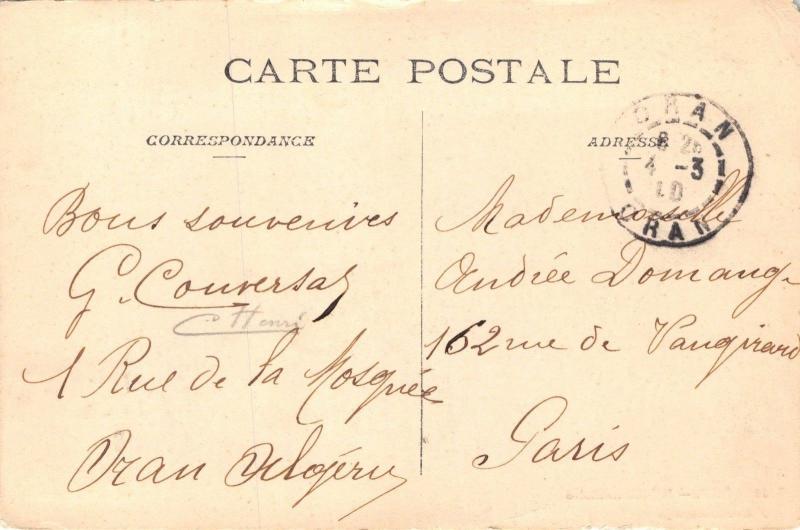 CARTE POSTALE
CORRESPONDANCE
Bons souvenirs
G. Couversat
Henri
1 Rue de la Mosquée
Oran Algérie
ADRESSE
ORAN
4 -3
10
ORAN
Mademoiselle
Andrée Domang
162 rue de Vaugirard
Paris